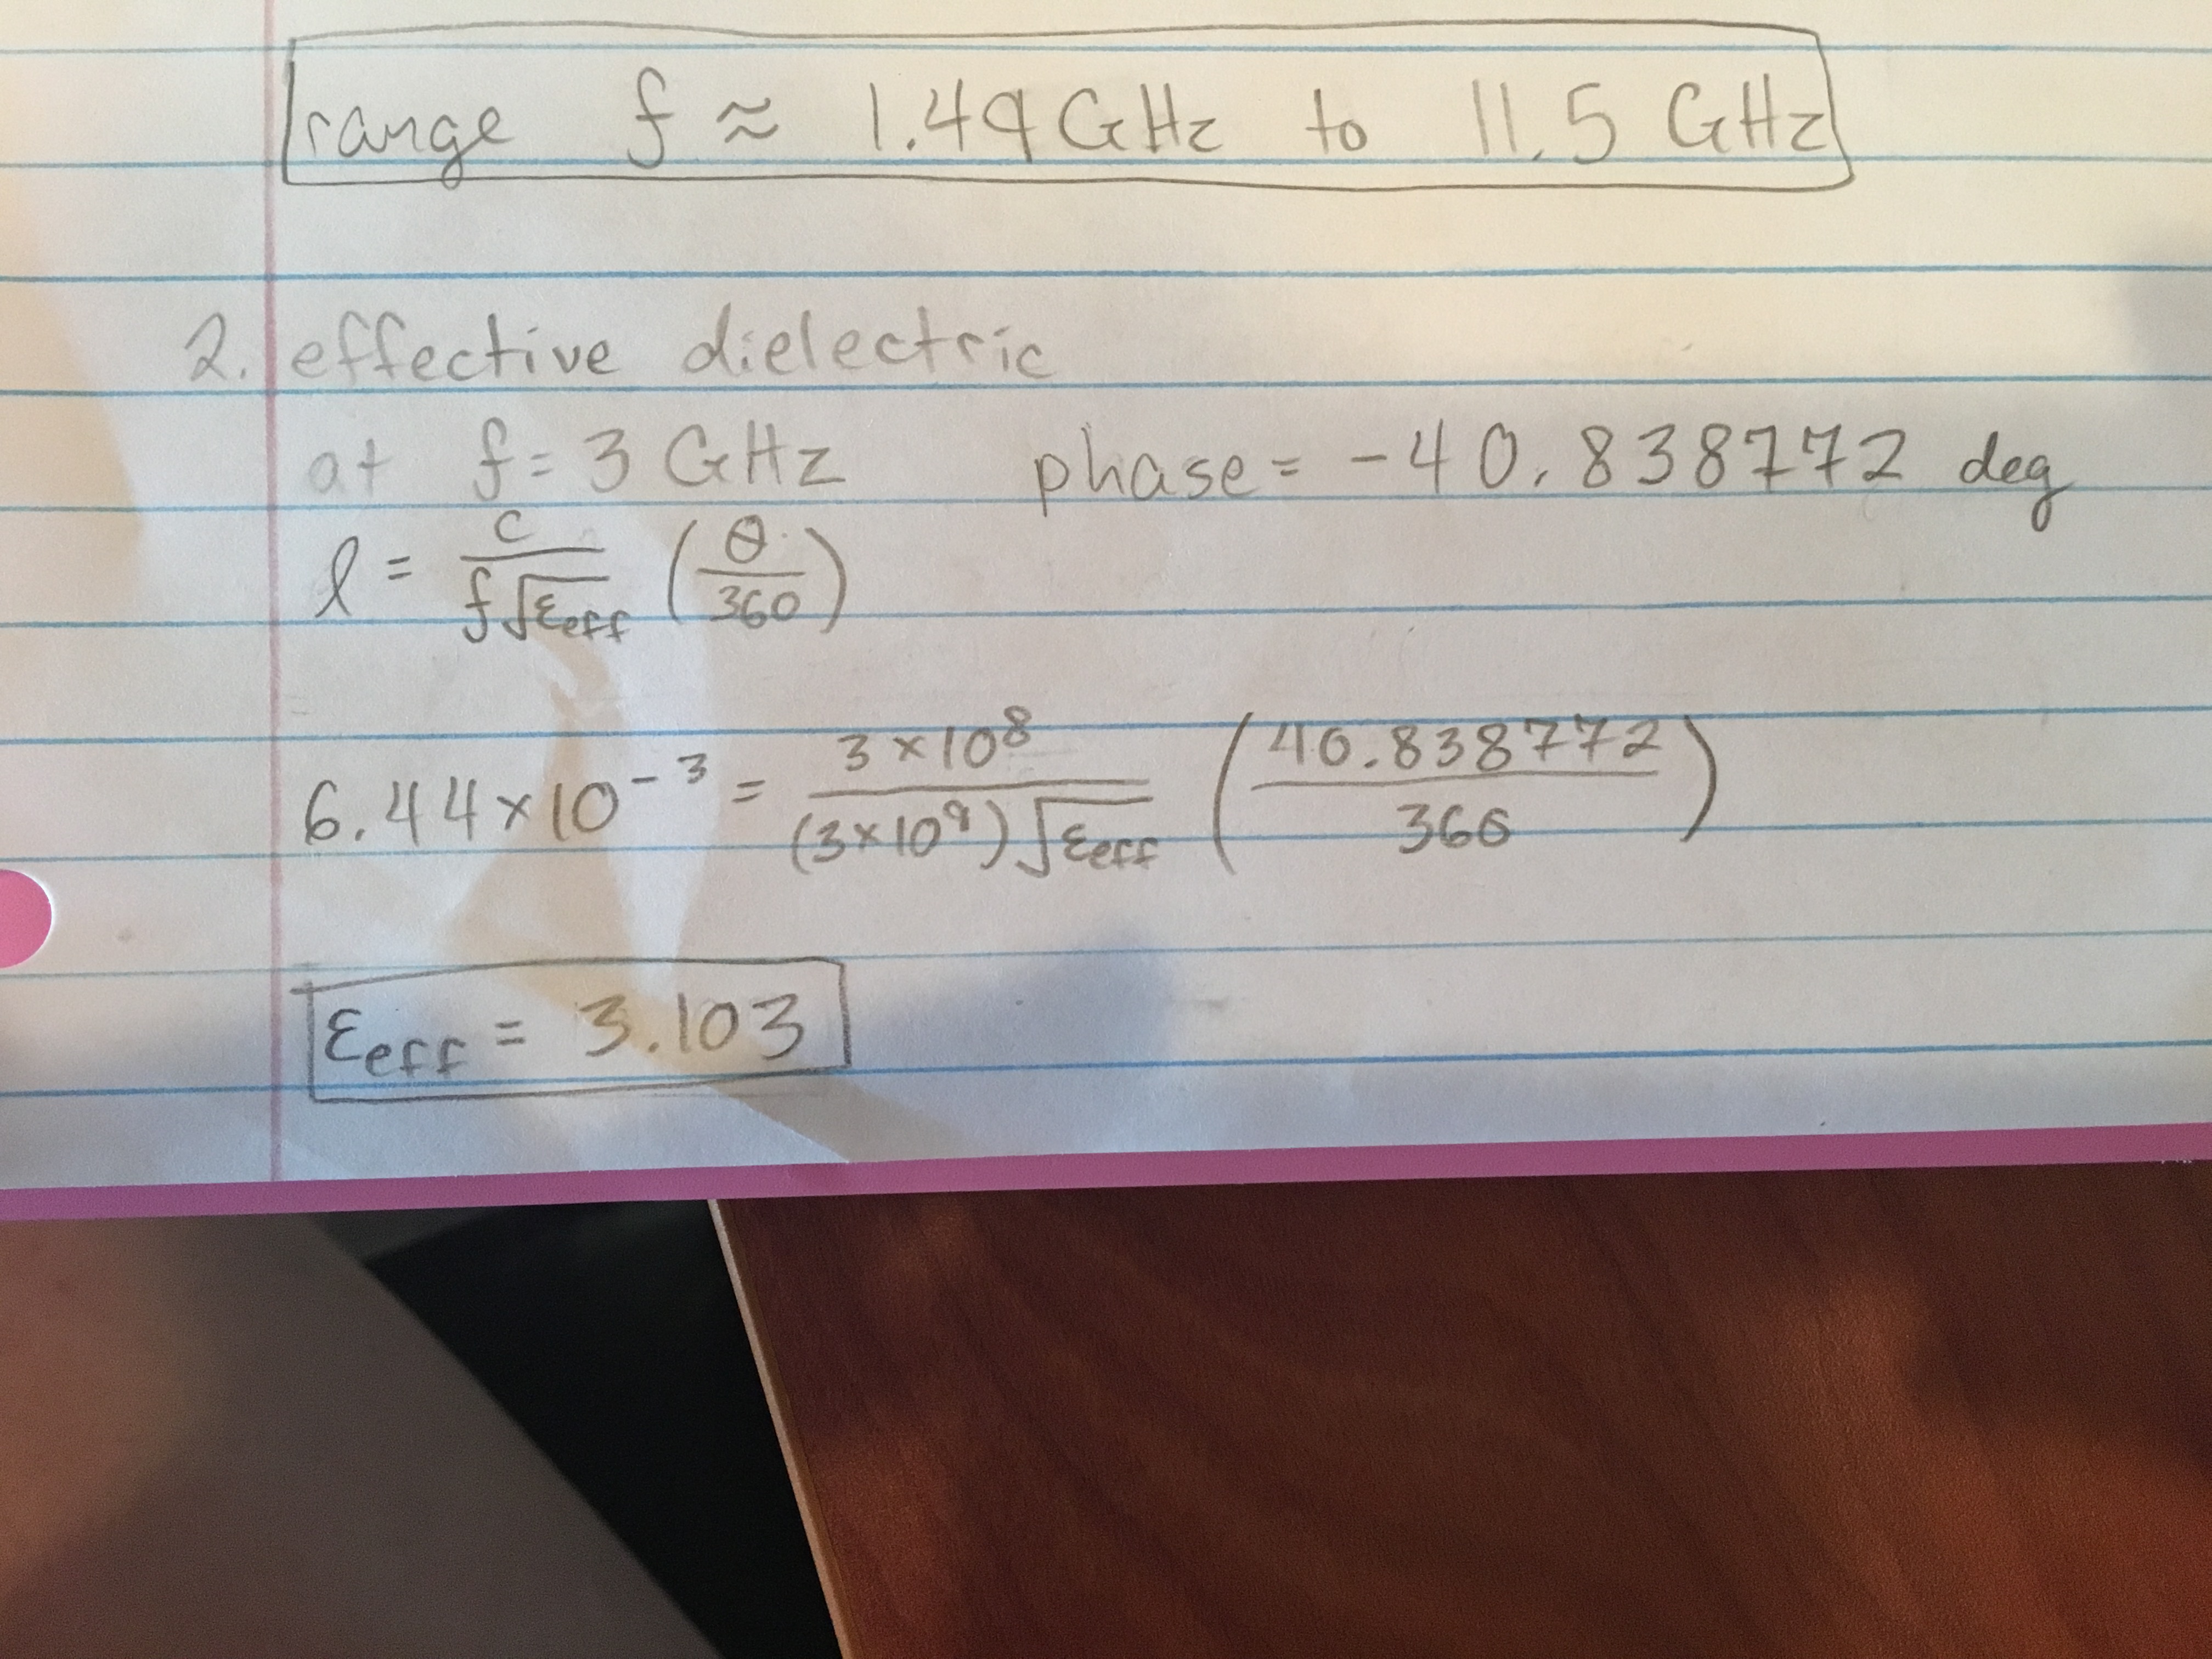 range f ≈ 1.49 GHz to 11.5 GHz
2. effective dielectric
at f = 3 GHz phase = -40.838772 deg
l = c / f√εeff (θ / 360)
6.44 × 10⁻³ = 3 × 10⁸ / (3 × 10⁹)√εeff (40.838772 / 360)
εeff = 3.103